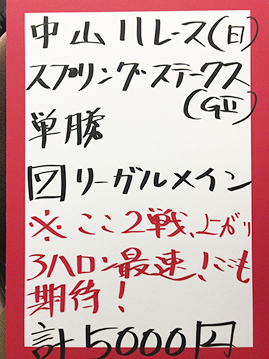 中山11レース(日)
スプリングステークス
(GⅡ)
単勝
四リーグルメイン
※ここ2戦、上がり
3ハロン最速!にも
期待!
計5000円